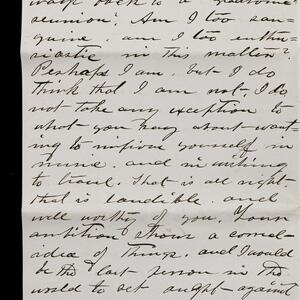 back to a
reunion". Am I too san-
guine, am I too enthu-
siastic in this matter?
Perhaps I am, but I do
think that I am not. I do
not take any exception to
what you say about want-
ing to improve yourself in
music, and in wishing
to travel. That is all right,
that is laudible, and
well worthy of you. Your
ambition shows a correct
idea of things, and I would
be the last person in the
world to set aught against